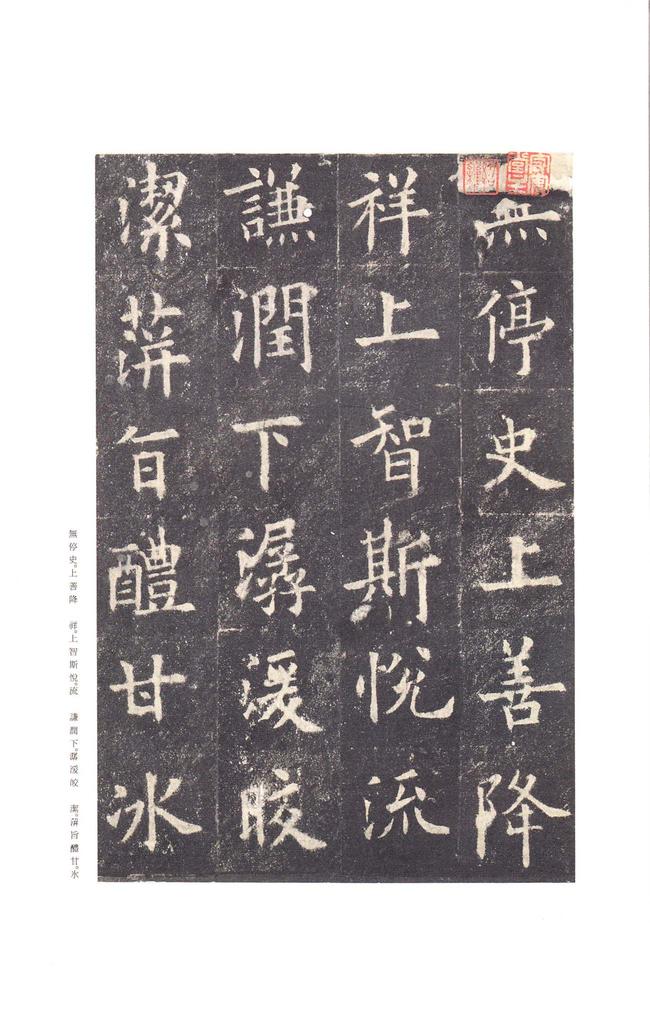 無停史上善降
祥上智斯悅流
謙潤下潺湲皎
潔蓱旨醴甘冰
無停史。上善降　祥。上智斯悅。流　謙潤下。潺湲皎　潔。蓱旨醴甘。冰